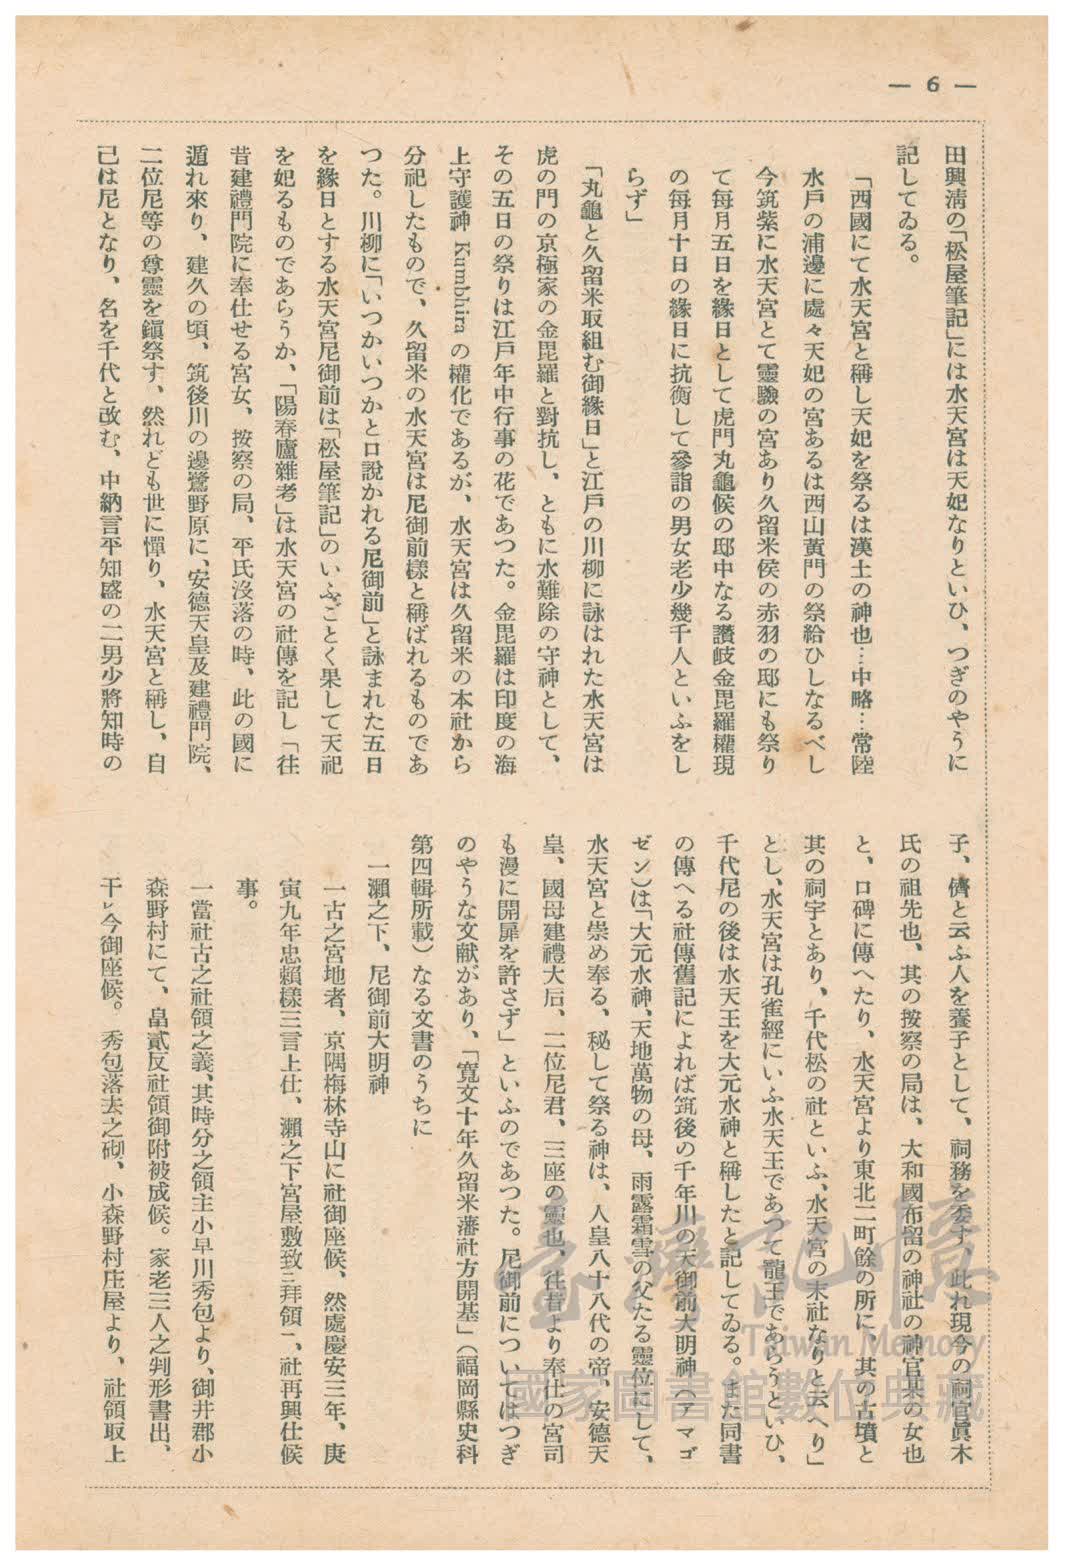 — 6 —
田興淸の「松屋筆記」には水天宮は天妃なりといひ、つぎのやうに
記してゐる。
「西國にて水天宮と稱し天妃を祭るは漢土の神也…中略…常陸
水戶の浦邊に處々天妃の宮あるは西山黃門の祭給ひしなるべし
今筑紫に水天宮とて靈驗の宮あり久留米侯の赤羽の邸にも祭り
て每月五日を緣日として虎門丸龜候の邸中なる讚岐金毘羅權現
の每月十日の緣日に抗衡して參詣の男女老少幾千人といふをし
らず」
「丸龜と久留米取組む御緣日」と江戶の川柳に詠はれた水天宮は
虎の門の京極家の金毘羅と對抗し、ともに水難除の守神として、
その五日の祭りは江戶年中行事の花であつた。金毘羅は印度の海
上守護神 Kumbhira の權化であるが、水天宮は久留米の本社から
分祀したもので、久留米の水天宮は尼御前樣と稱ばれるものであ
つた。川柳に「いつかいつかと口說かれる尼御前」と詠まれた五日
を緣日とする水天宮尼御前は「松屋筆記」のいふごとく果して天祀
を妃るものであらうか、「陽春廬雜考」は水天宮の社傳を記し「往
昔建禮門院に奉仕せる宮女、按察の局、平氏沒落の時、此の國に
遁れ來り、建久の頃、筑後川の邊鷺野原に、安德天皇及建禮門院、
二位尼等の尊靈を鎭祭す、然れども世に憚り、水天宮と稱し、自
己は尼となり、名を千代と改む、中納言平知盛の二男少將知時の
子、儕と云ふ人を養子として、祠務を委す、此れ現今の祠官眞木
氏の祖先也、其の按察の局は、大和國布留の神社の神官某の女也
と、口碑に傳へたり、水天宮より東北二町餘の所に、其の古墳と
其の祠宇とあり、千代松の社といふ、水天宮の末社なりと云へり」
とし、水天宮は孔雀經にいふ水天王であつて龍王であらうといひ、
千代尼の後は水天王を大元水神と稱したと記してゐる。また同書
の傳へる社傳舊記によれば筑後の千年川の天御前大明神（アマゴ
ゼン）は「大元水神、天地萬物の母、雨露霜雪の父たる靈位にして、
水天宮と崇め奉る、秘して祭る神は、人皇八十八代の帝、安德天
皇、國母建禮大后、二位尼君、三座の靈也、往昔より奉仕の宮司
も漫に開扉を許さず」といふのであつた。尼御前についてはつぎ
のやうな文献があり、「寬文十年久留米藩社方開基」（福岡縣史科
第四輯所載）なる文書のうちに
一瀨之下、尼御前大明神
一古之宮地者、京隅梅林寺山に社御座候、然處慶安三年、庚
寅九年忠賴樣三言上仕、瀨之下宮屋敷致三拜領一、社再興仕候
事。
一當社古之社領之義、其時分之領主小早川秀包より、御井郡小
森野村にて、畠貳反社領御附被成候。家老三人之判形書出、
干レ今御座候。秀包落去之砌、小森野村庄屋より、社領取上
臺灣記憶
Taiwan Memory
國家圖書館數位典藏